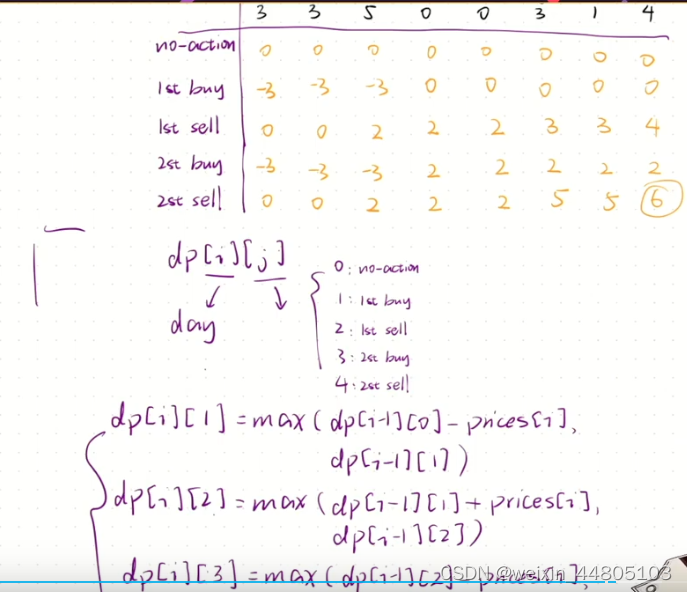 3 3 5 0 0 3 1 4
no-action 0 0 0 0 0 0 0 0
1st buy -3 -3 -3 0 0 0 0 0
1st sell 0 0 2 2 2 3 3 4
2st buy -3 -3 -3 2 2 2 2 2
2st sell 0 0 2 2 2 5 5 6
dp[i][j]
0: no-action
1: 1st buy
day
2: 1st sell
3: 2st buy
4: 2st sell
dp[i][1] = max(dp[i-1][0] - prices[i],
dp[i-1][1])
dp[i][2] = max(dp[i-1][1] + prices[i],
dp[i-1][2])
dp[i][3] = max(dp[i-1][2] - prices[i],
CSDN @weixin_44805103